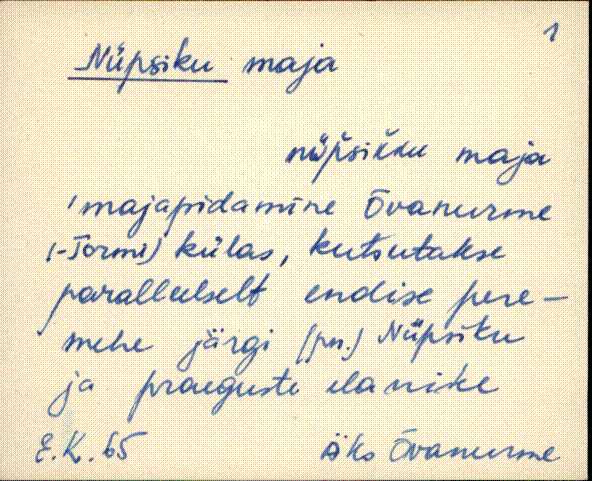 1
Nüpsiku maja
nüp̆sik̆ku maja
'majapidamine Õvanurme
(-Tormi) külas, kutsutakse
paralleelselt endise pere-
mehe järgi (pn.) Nüpsiku
ja praeguste elanike
E.K. 65 Äks Õvanurme